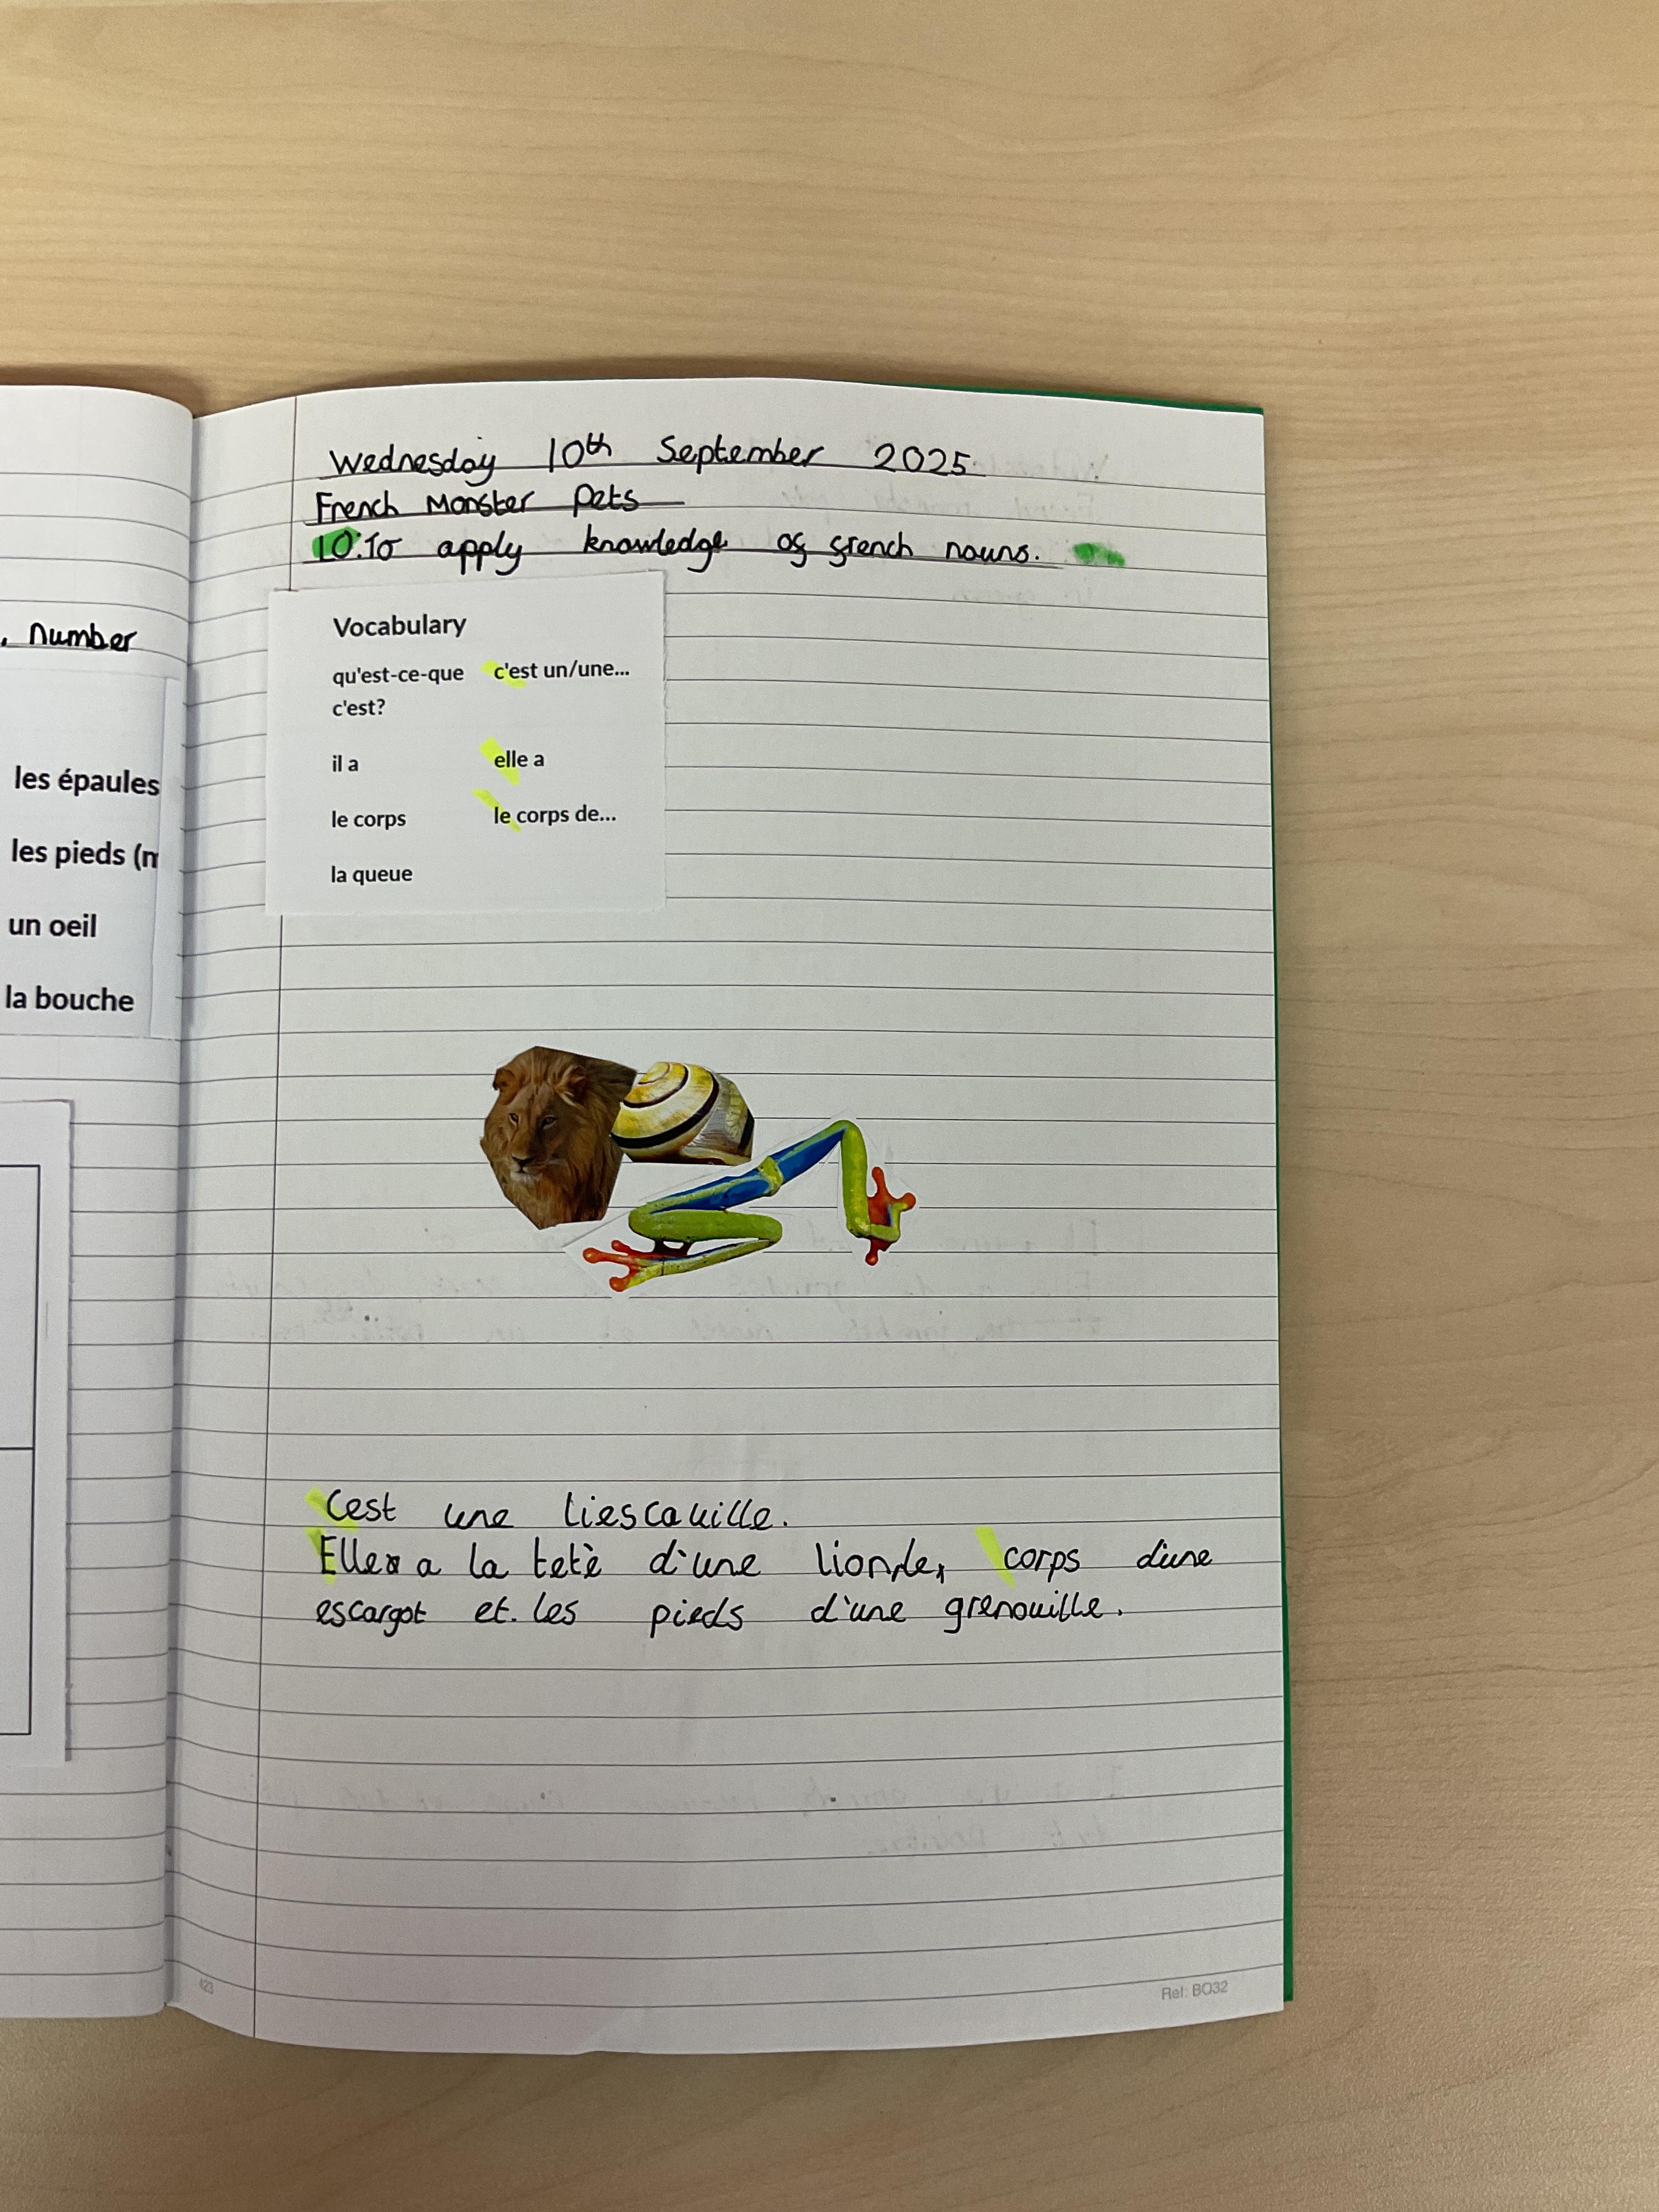 , number
les épaules
les pieds (m
un oeil
la bouche
Wednesday 10th September 2025
French Monster Pets
LO: To apply knowledge of french nouns.
Vocabulary
qu'est-ce-que c'est un/une...
c'est?
il a elle a
le corps le corps de...
la queue
C'est une liescauille.
Elle a la tetè d'une lion, le corps d'une
escargot et. les pieds d'une grenouille.
423
Ref: BO32